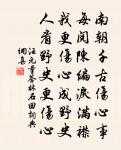 南朝千古傷心事
每閱陳編淚滿襟
我更傷心成野史
人看野史更傷心
汪元量答林石田詞典
網集